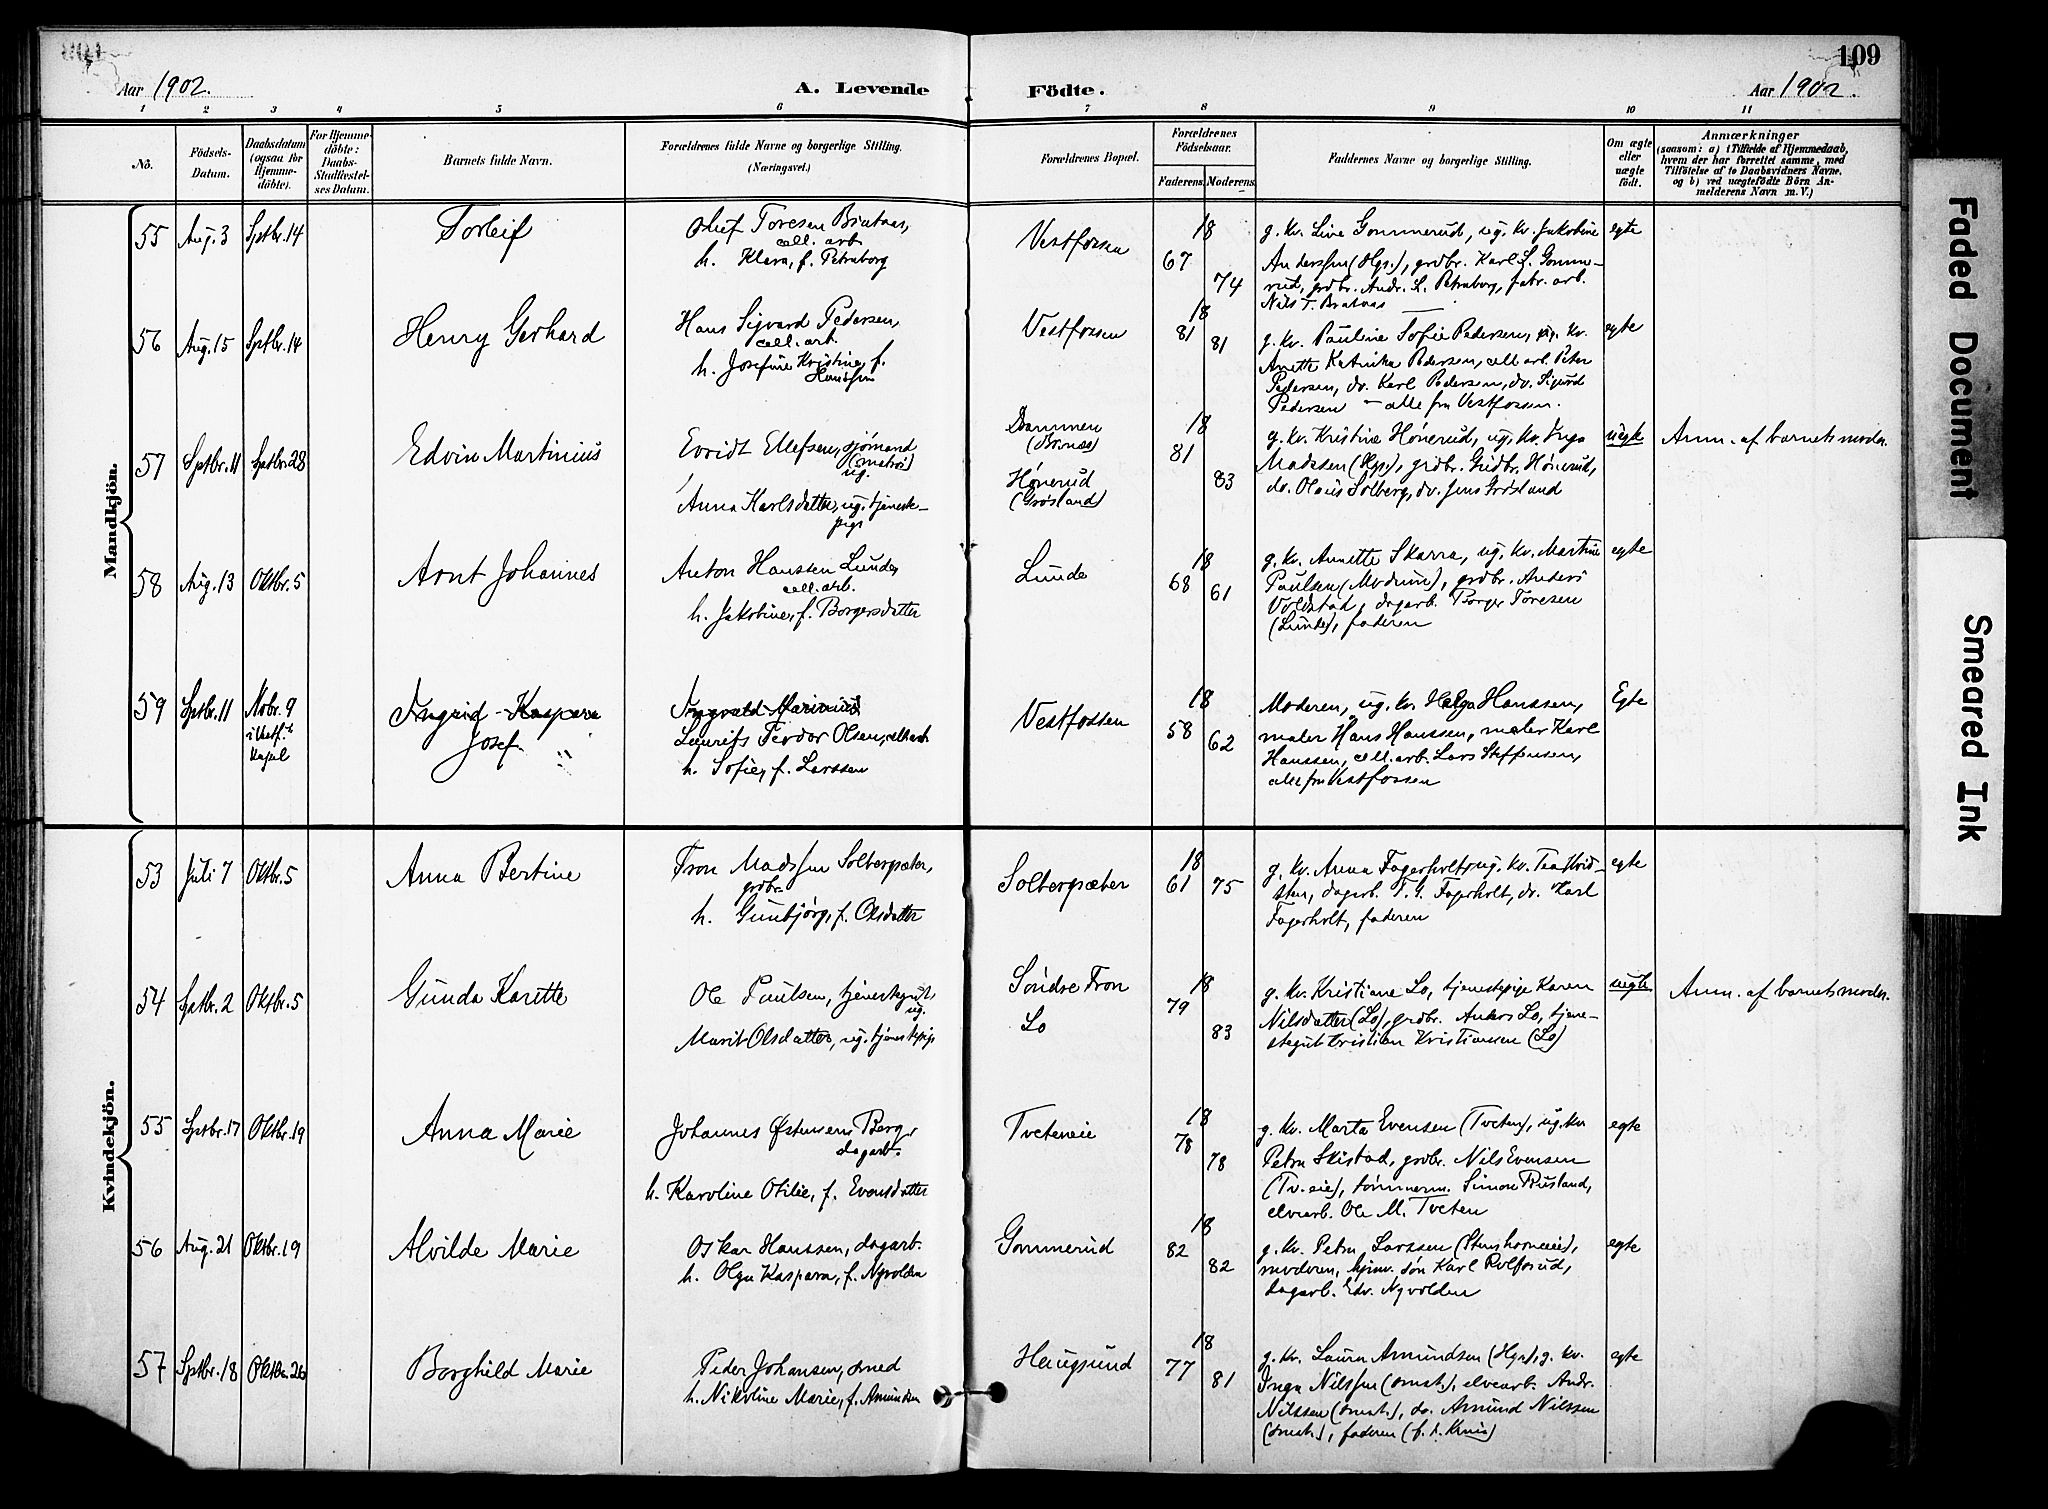 109
Aar 1902.
A. Levende Födte.
Aar 1902.
1 2 3 4 5 6 7 8 9 10 11
No.
Födsels-
Datum.
Daabsdatum
(ogsaa for
Hjemme-
döbte).
For Hjemme-
döbte:
Daabs-
Stadfæstel-
ses Datum.
Barnets fulde Navn.
Forældrenes fulde Navne og borgerlige Stilling.
(Næringsvei.)
Forældrenes Bopæl.
Forældrenes
Födselsaar.
Faderens. Moderens.
Faddernes Navne og borgerlige Stilling.
Om ægte
eller
uægte
födt.
Anmærkninger
(saasom: a) i Tilfælde af Hjemmedaab,
hvem der har forrettet samme, med
Tilföielse af to Daabsvidners Navne,
og b) ved uægtefödte Börn An-
melderens Navn m. V.)
Mandkjön.
55 Aug. 3 Sptbr. 14
Torleif
Oluf Toresen Brataas,
cell. arb.
h. Klara, f. Petraborg
Vestfossen
18
67
74
g. kv. Live Gommerud, ug. kv. Jakobine
Anderssen (Hgs.), grdbr. Karl L. Gomme-
rud, grdbr. Andr. L. Petraborg, fabr. arb.
Nils T. Brataas
egte
56 Aug. 15 Sptbr. 14
Henry Gerhard
Hans Sigvard Pedersen,
cell. arb.
h. Josefine Kristine, f.
Hanssen
Vestfossen
18
81
81
g. kv. Pauline Sofie Pedersen, ug. kv.
Anette Katrinka Pedersen, cell. arb. Peter
Pedersen, do. Karl Pedersen, do. Sigurd
Pedersen – alle fra Vestfossen.
egte
57 Sptbr. 11 Sptbr. 28
Edvin Martinius
Evridt Ellefsen, sjömand
(matros)
ug.
Anna Karlsdatter, ug. tjeneste-
pige
Drammen
(Brnæs)
Hønerud
(Grøsland)
18
81
83
g. kv. Kristine Hønerud, ug. kv. Inga
Madssen (Hgs.), grdbr. Gudbr. Hønerud,
do. Olaus Solberg, do. Jens Grøsland
uegte
Anm. af barnets moder.
58 Aug. 13 Oktbr. 5
Arnt Johannes
Anton Hanssen Lunde,
cell. arb.
h. Jakobine, f. Borgersdatter
Lunde
18
68
61
g. kv. Annette Skarra, ug. kv. Martine
Paulsen (Modum), grdbr. Anders
Voldstad, dagarb. Borger Toresen
(Lunde), faderen
egte
59 Sptbr. 11 Novbr. 9
i Vestf.
kapel
Ingrid Kaspara
Josef
Ingvald Marinius
Laurits Teodor Olsen, cell. arb.
h. Sofie, f. Larssen
Vestfossen
18
58
62
Moderen, ug. kv. Helga Hanssen,
maler Hans Hanssen, maler Karl
Hanssen, cell. arb. Lars Steffensen,
alle fra Vestfossen
Egte
Kvindekjön.
53 Juli 7 Oktbr. 5
Anna Bertine
Tron Madssen Solbergsæter,
grdbr.
h. Gunbjørg, f. Olsdatter
Solbergsæter
18
61 75
g. kv. Anna Fagerholt, ug. kv. Tea Krid-
sten, dagarb. T. G. Fagerholt, do. Karl
Fagerholt, faderen
egte
54 Sptbr. 2 Oktbr. 5
Gunda Karitte
Ole Paulsen, tjenestegut,
ug.
Marit Olsdatter, ug. tjenestepige
Söndre Fron
Lo
18
79
83
g. kv. Kristiane Lo, tjenestepige Karen
Nilsdatter (Lo), grdbr. Anders Lo, tjene-
stegut Kristian Kristiansen (Lo)
uegte
Anm. af barnets moder.
55 Sptbr. 17 Oktbr. 19
Anna Marie
Johannes Østensen Berg,
dagarb.
h. Karoline Otilie, f. Evensdatter
Tveteneie
18
78
78
g. kv. Marta Evensen (Tveten), ug. kv.
Petra Skistad, grdbr. Nils Evensen
(Tv. eie), tømmerm. Simon Rusland,
elvearb. Ole M. Tveten
egte
56 Aug. 21 Oktbr. 19
Alvilde Marie
Oskar Hanssen, dagarb.
h. Olga Kaspara, f. Nyvolden
Gommerud
18
82
82
g. kv. Petra Larssen (Stenshorneie),
moderen, søn Karl Rolfsrud,
dagarb. Edv. Nyvolden
egte
57 Sptbr. 18 Oktbr. 26
Borghild Marie
Peder Johansen, smed
h. Nikoline Marie, f. Amundsen
Haugsund
18
77
81
g. kv. Laura Amundsen (Hgs), g. kv.
Inga Nilssen (smst.), elvearb. Andr.
Nilssen (smst.), do. Amund Nilssen
(smst.), faderen
egte
Faded Document
Smeared Ink